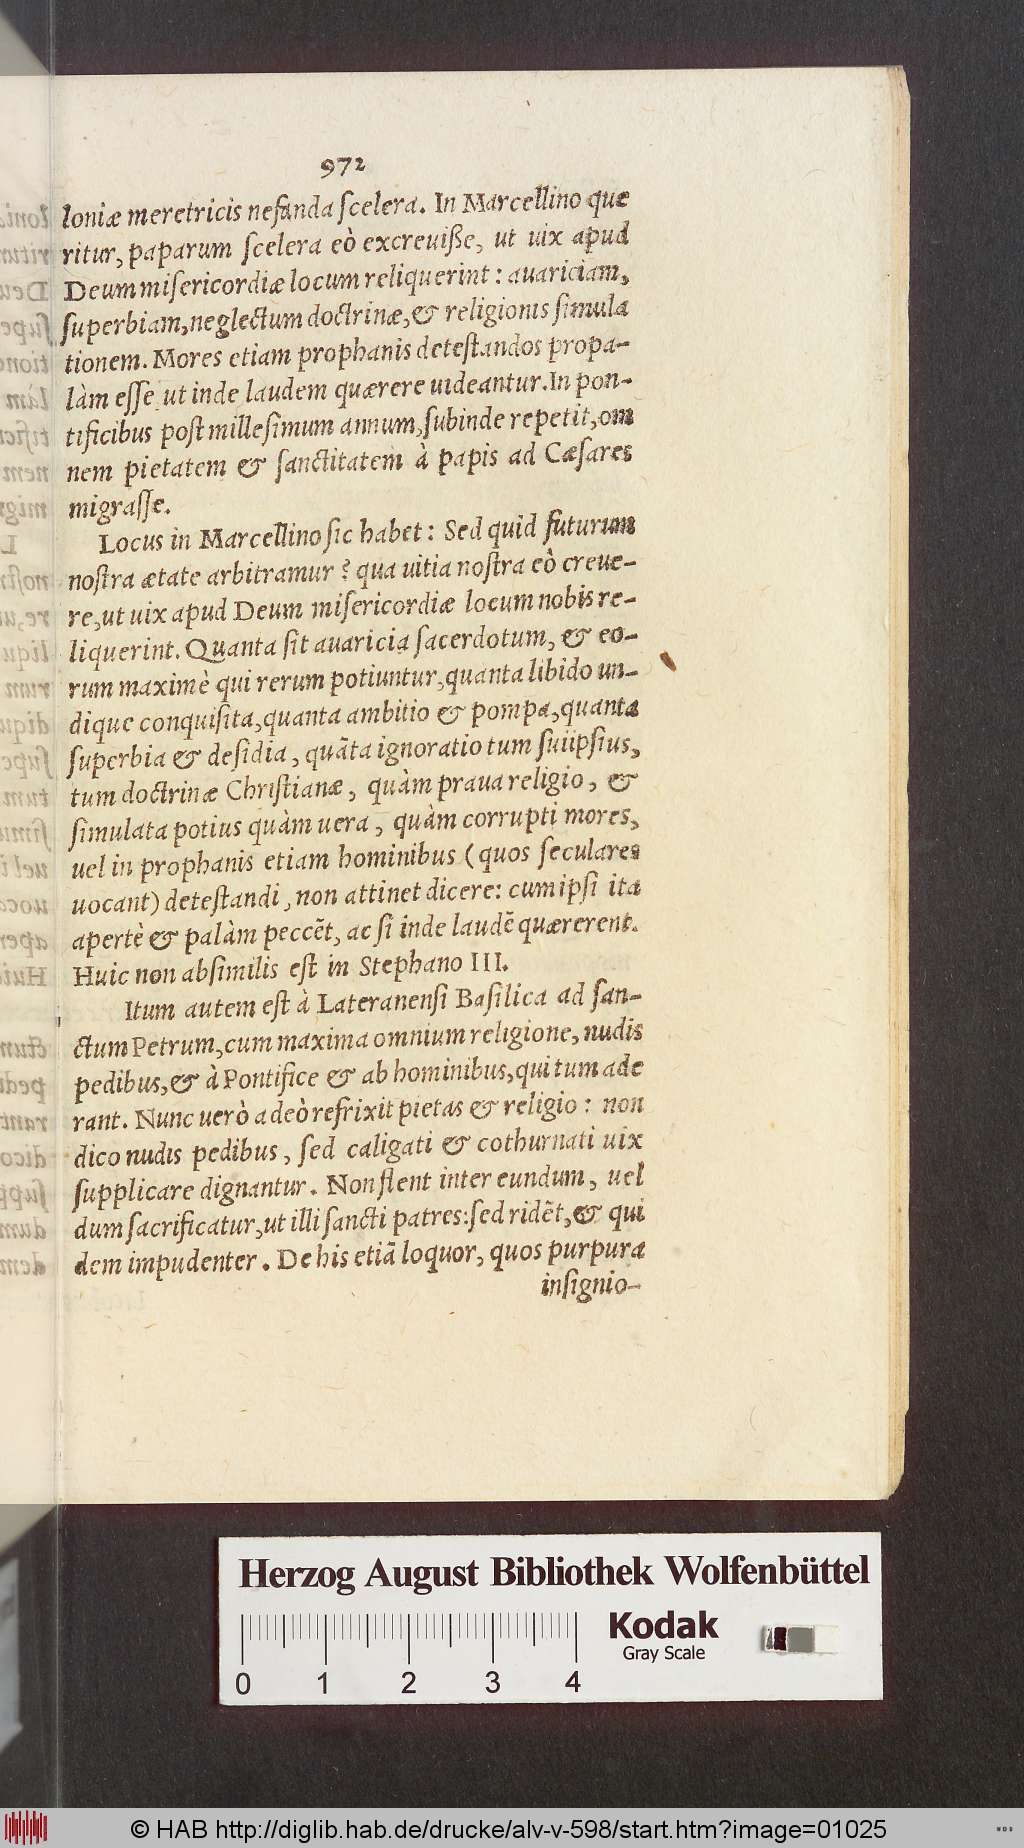 972
loniæ meretricis nefanda ſcelera. In Marcellino que
ritur, paparum ſcelera eò excreuiſſe, ut uix apud
Deum miſericordiæ locum reliquerint: auariciam,
ſuperbiam, neglectum doctrinæ, & religionis ſimula
tionem. Mores etiam prophanis deteſtandos propa-
làm eſſe ut inde laudem quærere uideantur. In pon-
tificibus poſt milleſimum annum, ſubinde repetit, om
nem pietatem & ſanctitatem à papis ad Cæſares
migraſſe.
Locus in Marcellino ſic habet: Sed quid futurum
noſtra ætate arbitramur? qua uitia noſtra eò creue-
re, ut uix apud Deum miſericordiæ locum nobis re-
liquerint. Quanta ſit auaricia ſacerdotum, & eo-
rum maximè qui rerum potiuntur, quanta libido un-
dique conquiſita, quanta ambitio & pompa, quanta
ſuperbia & deſidia, quãta ignoratio tum ſuiipſius,
tum doctrinæ Chriſtianæ, quàm praua religio, &
ſimulata potius quàm uera, quàm corrupti mores,
uel in prophanis etiam hominibus (quos ſeculares
uocant) deteſtandi, non attinet dicere: cum ipſi ita
apertè & palàm peccẽt, ac ſi inde laudẽ quærerent.
Huic non abſimilis eſt in Stephano III.
Itum autem eſt à Lateranenſi Baſilica ad ſan-
ctum Petrum, cum maxima omnium religione, nudis
pedibus, & à Pontifice & ab hominibus, qui tum ade
rant. Nunc uerò adeò refrixit pietas & religio: non
dico nudis pedibus, ſed caligati & cothurnati uix
ſupplicare dignantur. Non flent inter eundum, uel
dum ſacrificatur, ut illi ſancti patres: ſed ridẽt, & qui
dem impudenter. De his etiã loquor, quos purpura
inſignio-
Herzog August Bibliothek Wolfenbüttel
Kodak
Gray Scale
0 1 2 3 4
© HAB http://diglib.hab.de/drucke/alv-v-598/start.htm?image=01025